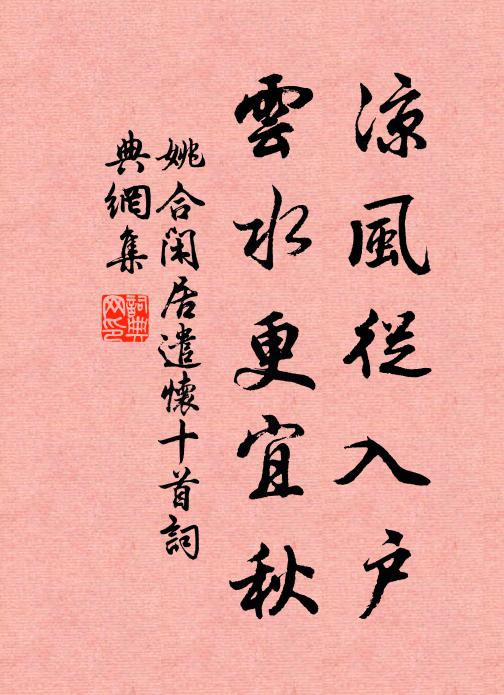 凉風從入户
雲水更宜秋
姚合閑居遣懷十首詞
典網集
詞典網印